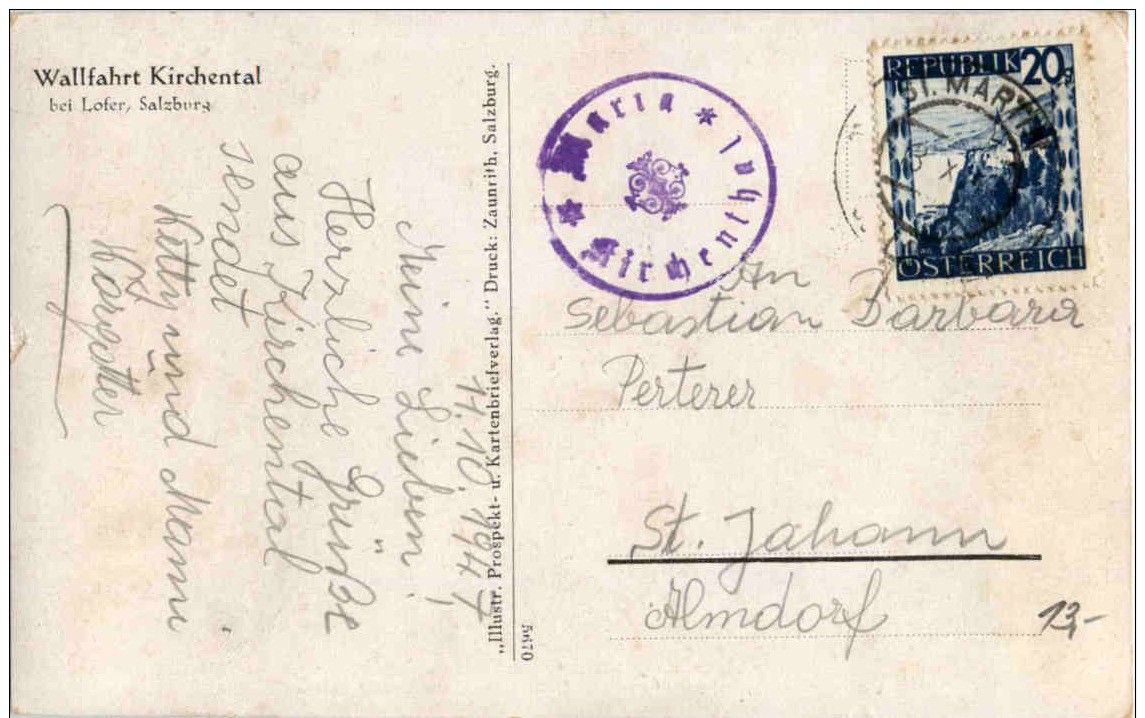 Wallfahrt Kirchental
bei Lofer, Salzburg
11.10.1947
Meine Lieben!
Herzliche Grüße
aus Kirchental
sendet
Ketty und Mami
"Illustr. Prospekt- u. Kartenbriefverlag." Druck: Zaunrith, Salzburg.
Maria * Kirchenthal *
REPUBLIK 20g
ÖSTERREICH
ST. MARTIN
An
Sebastian Barbara
Perterer
St. Johann
Almdorf
13,-